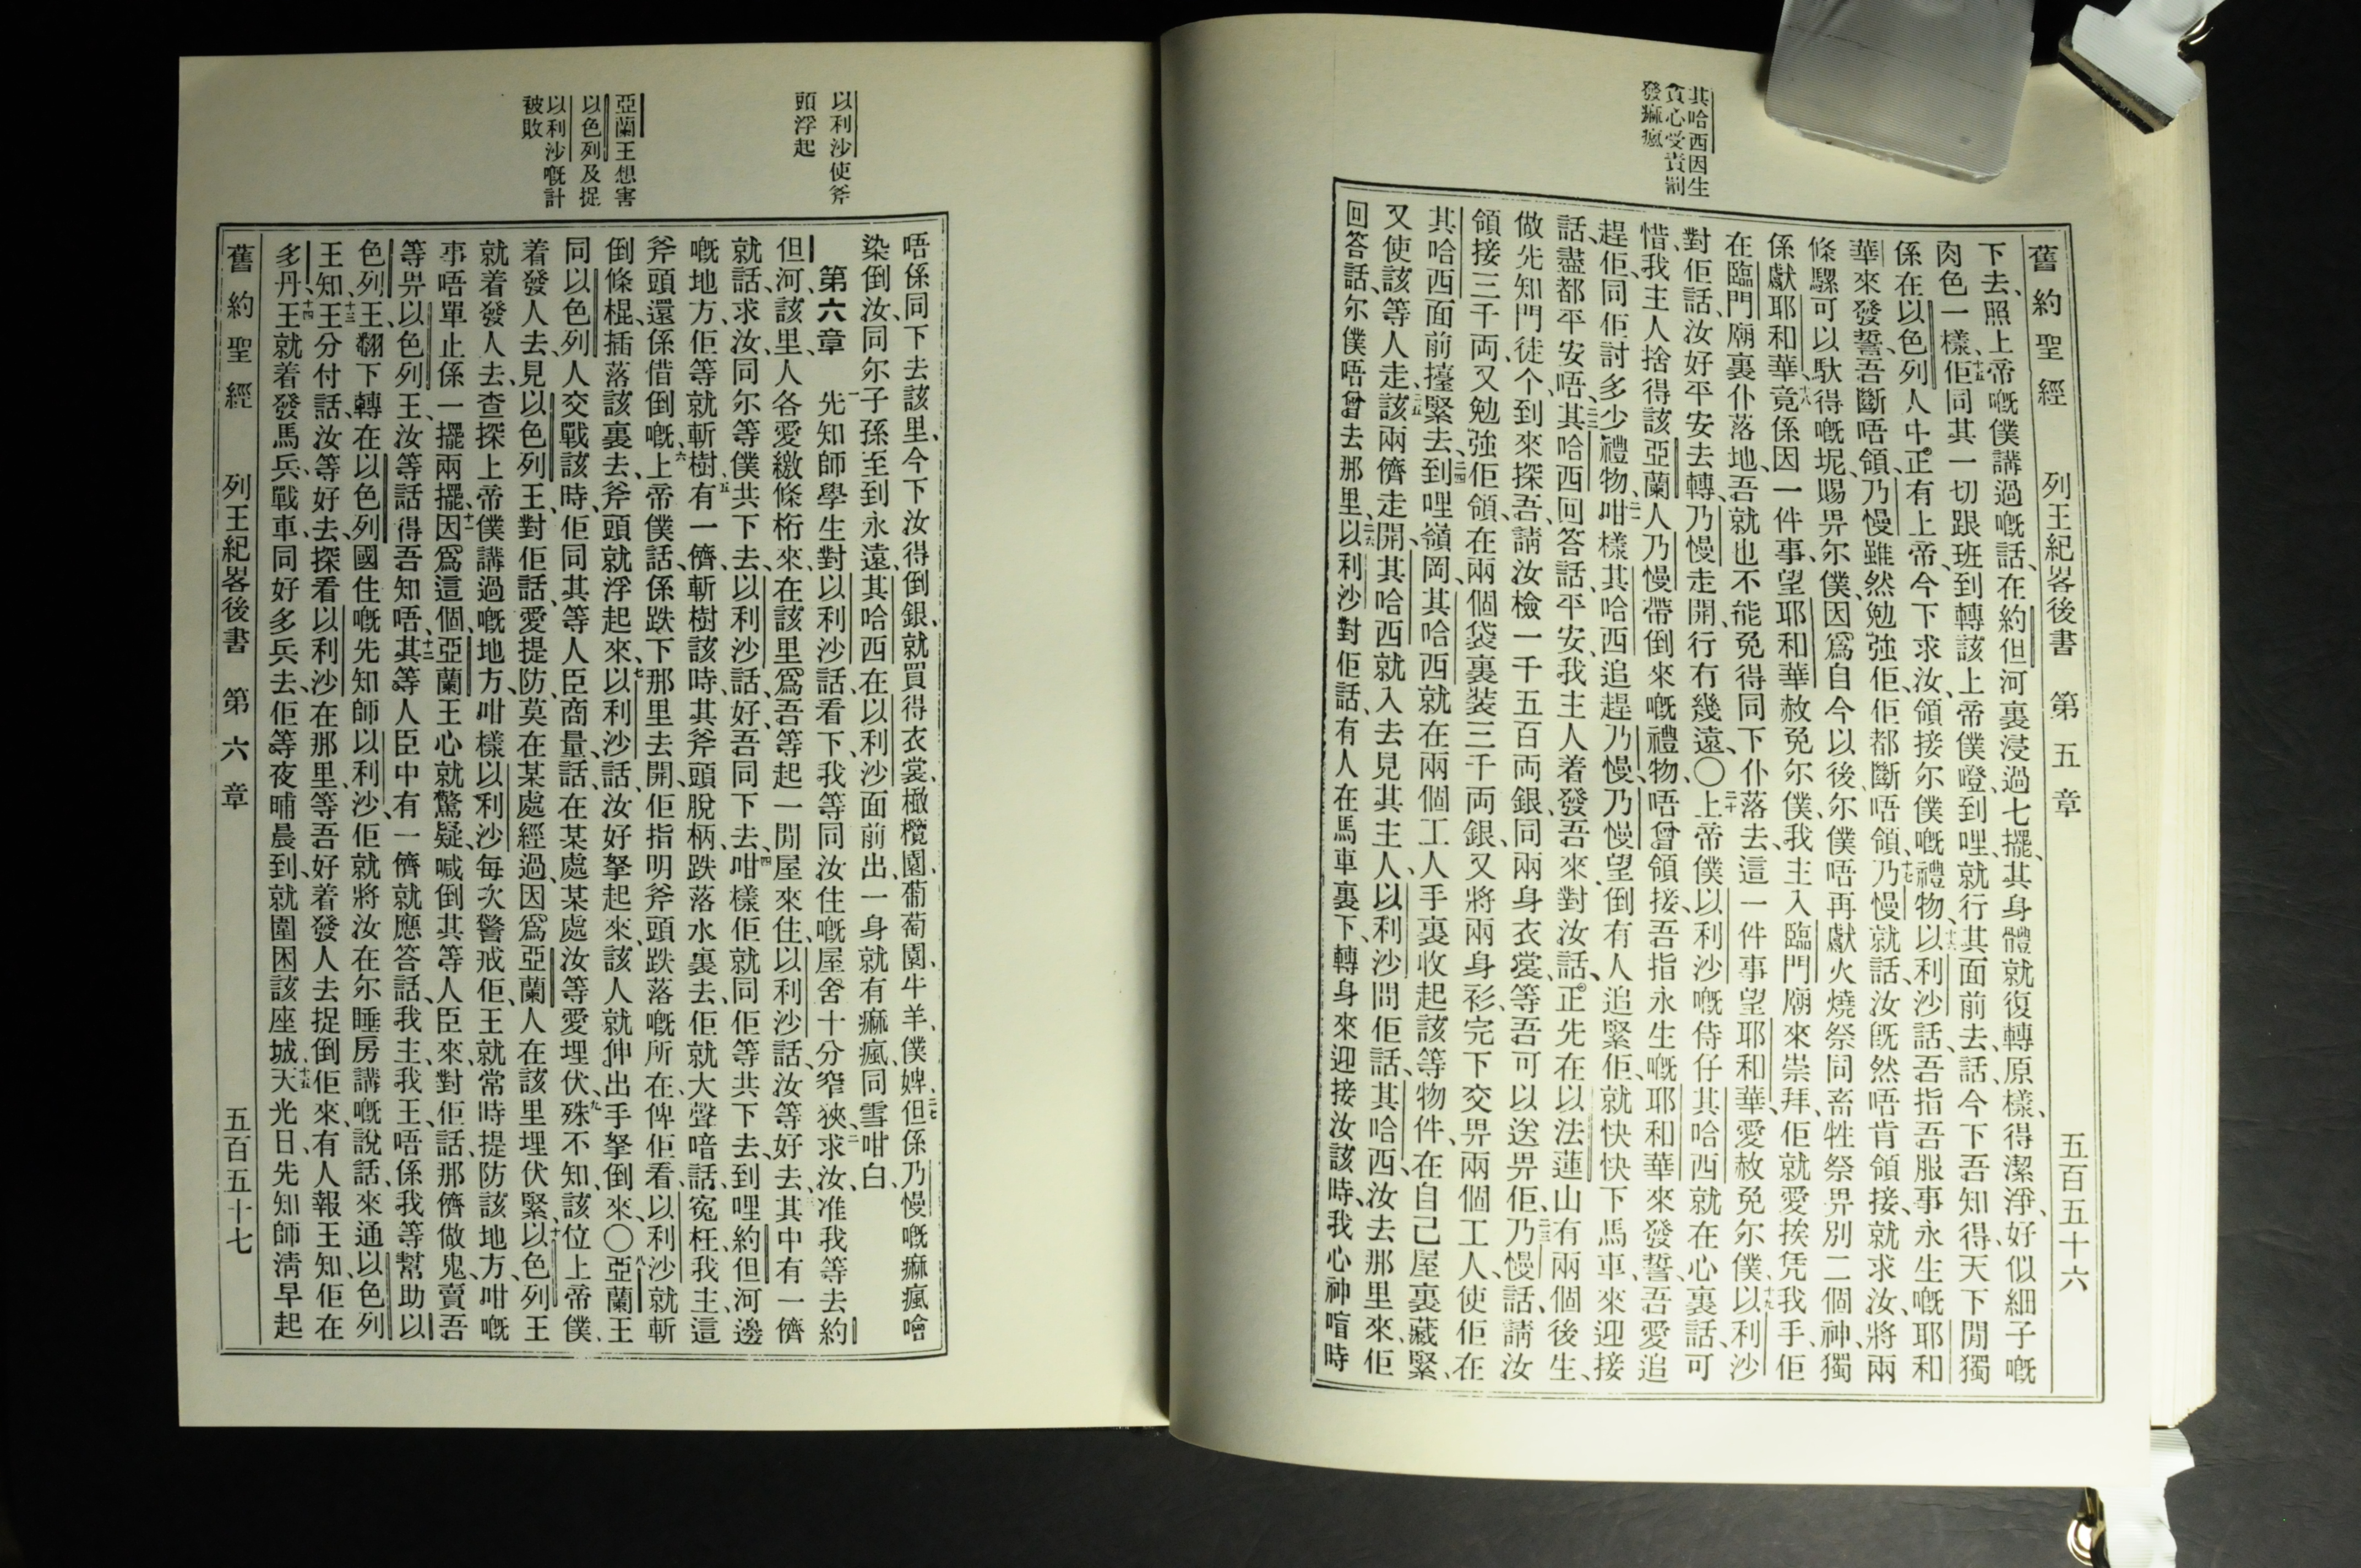 舊約聖經 列王紀畧後書 第五章 五百五十六
其哈西因生
貪心受責罰
發痲瘋
下去、照上帝嘅僕講過嘅話、在約但河裏浸過七擺、其身體就復轉原樣、得潔淨、好似細子嘅
肉色一樣、十五佢同其一切跟班到轉該上帝僕嶝、到哩、就行其面前去、話、今下吾知得天下閒獨
係在以色列人中正有上帝、今下求汝、領接尔僕嘅禮物、十六以利沙話、吾指吾服事永生嘅耶和
華來發誓、吾斷唔領、乃慢雖然勉強佢、佢都斷唔領、十七乃慢就話、汝旣然唔肯領接、就求汝、將兩
條騾可以馱得嘅坭、賜畀尔僕、因爲自今以後、尔僕唔再獻火燒祭同畜牲祭畀別二個神、獨
係獻耶和華、十八竟係因一件事、望耶和華赦免尔僕、我主入臨門廟來崇拜、佢就愛挨凭我手、佢
在臨門廟裏仆落地、吾就也不能免得同下仆落去、這一件事望耶和華、愛赦免尔僕、十九以利沙
對佢話、汝好平安去轉、乃慢走開、行冇幾遠、〇二十上帝僕以利沙嘅侍仔其哈西就在心裏話、可
惜、我主人捨得該亞蘭人乃慢帶倒來嘅禮物、唔曾領接、吾指永生嘅耶和華來發誓、吾愛追
趕佢、同佢討多少禮物、二一咁樣其哈西追趕乃慢、乃慢望倒有人追緊佢、就快快下馬車、來迎接
話、盡都平安唔、二二其哈西回答話、平安、我主人着發吾來對汝話、正先在以法蓮山有兩個後生、
做先知門徒个、到來探吾、請汝檢一千五百両銀、同兩身衣裳、等吾可以送畀佢、二三乃慢話、請汝
領接三千両、又勉強佢領、在兩個袋裏装三千両銀、又將兩身衫、完下交畀兩個工人、使佢在
其哈西面前擡緊去、二四到哩嶺岡、其哈西就在兩個工人手裏收起該等物件、在自己屋裏藏緊、
又使該等人走、二五該兩儕走開、其哈西就入去見其主人、以利沙問佢話、其哈西、汝去那里來、佢
回答話、尔僕唔曾去那里、二六以利沙對佢話、有人在馬車裏下、轉身來迎接汝該時、我心神喑時
以利沙使斧
頭浮起
亞蘭王想害
以色列及捉
以利沙嘅計
被敗
唔係同下去該里、今下汝得倒銀、就買得衣裳、橄欖園、葡萄園、牛羊、僕婢、二七但係乃慢嘅痲瘋噲
染倒汝、同尔子孫至到永遠、其哈西在以利沙面前出、一身就有痲瘋、同雪咁白、
第六章 一先知師學生對以利沙話、看下、我等同汝住嘅屋舍十分窄狹、二求汝、准我等去約
但河、該里、人各愛繳條桁來、在該里爲吾等起一閒屋來住、以利沙話、汝等好去、三其中有一儕
就話、求汝、同尔等僕共下去、以利沙話、好、吾同下去、四咁樣佢就同佢等共下去、到哩約但河邊
嘅地方、佢等就斬樹、五有一儕、斬樹該時、其斧頭脫柄、跌落水裏去、佢就大聲喑話、寃枉、我主、這
斧頭還係借倒嘅、六上帝僕話、係跌下那里去開、佢指明斧頭跌落嘅所在、俾佢看、以利沙就斬
倒條棍、插落該裏去、斧頭就浮起來、七以利沙話、汝好拏起來、該人就伸出手拏倒來、〇八亞蘭王
同以色列人交戰該時、佢同其等人臣商量、話、在某處某處汝等愛埋伏、九殊不知該位上帝僕、
着發人去見以色列王、對佢話、愛提防、莫在某處經過、因爲亞蘭人在該里埋伏緊、十以色列王
就着發人去、查探上帝僕講過嘅地方、咁樣以利沙每次警戒佢、王就常時提防該地方、咁嘅
事唔單止係一擺兩擺、十一因爲這個、亞蘭王心就驚疑、喊倒其等人臣來、對佢話、那儕做鬼、賣吾
等畀以色列王、汝等話得吾知唔、十二其等人臣中有一儕就應答話、我主、我王、唔係我等幫助以
色列王、翻下轉在以色列國住嘅先知師以利沙、佢就將汝在尔睡房講嘅說話、來通以色列
王知、十三王分付話、汝等好去、探看以利沙在那里、等吾好着發人去捉倒佢來、有人報王知、佢在
多丹、十四王就着發馬兵、戰車、同好多兵去、佢等夜晡晨到、就圍困該座城、十五天光日、先知師淸早起
舊約聖經 列王紀畧後書 第六章 五百五十七